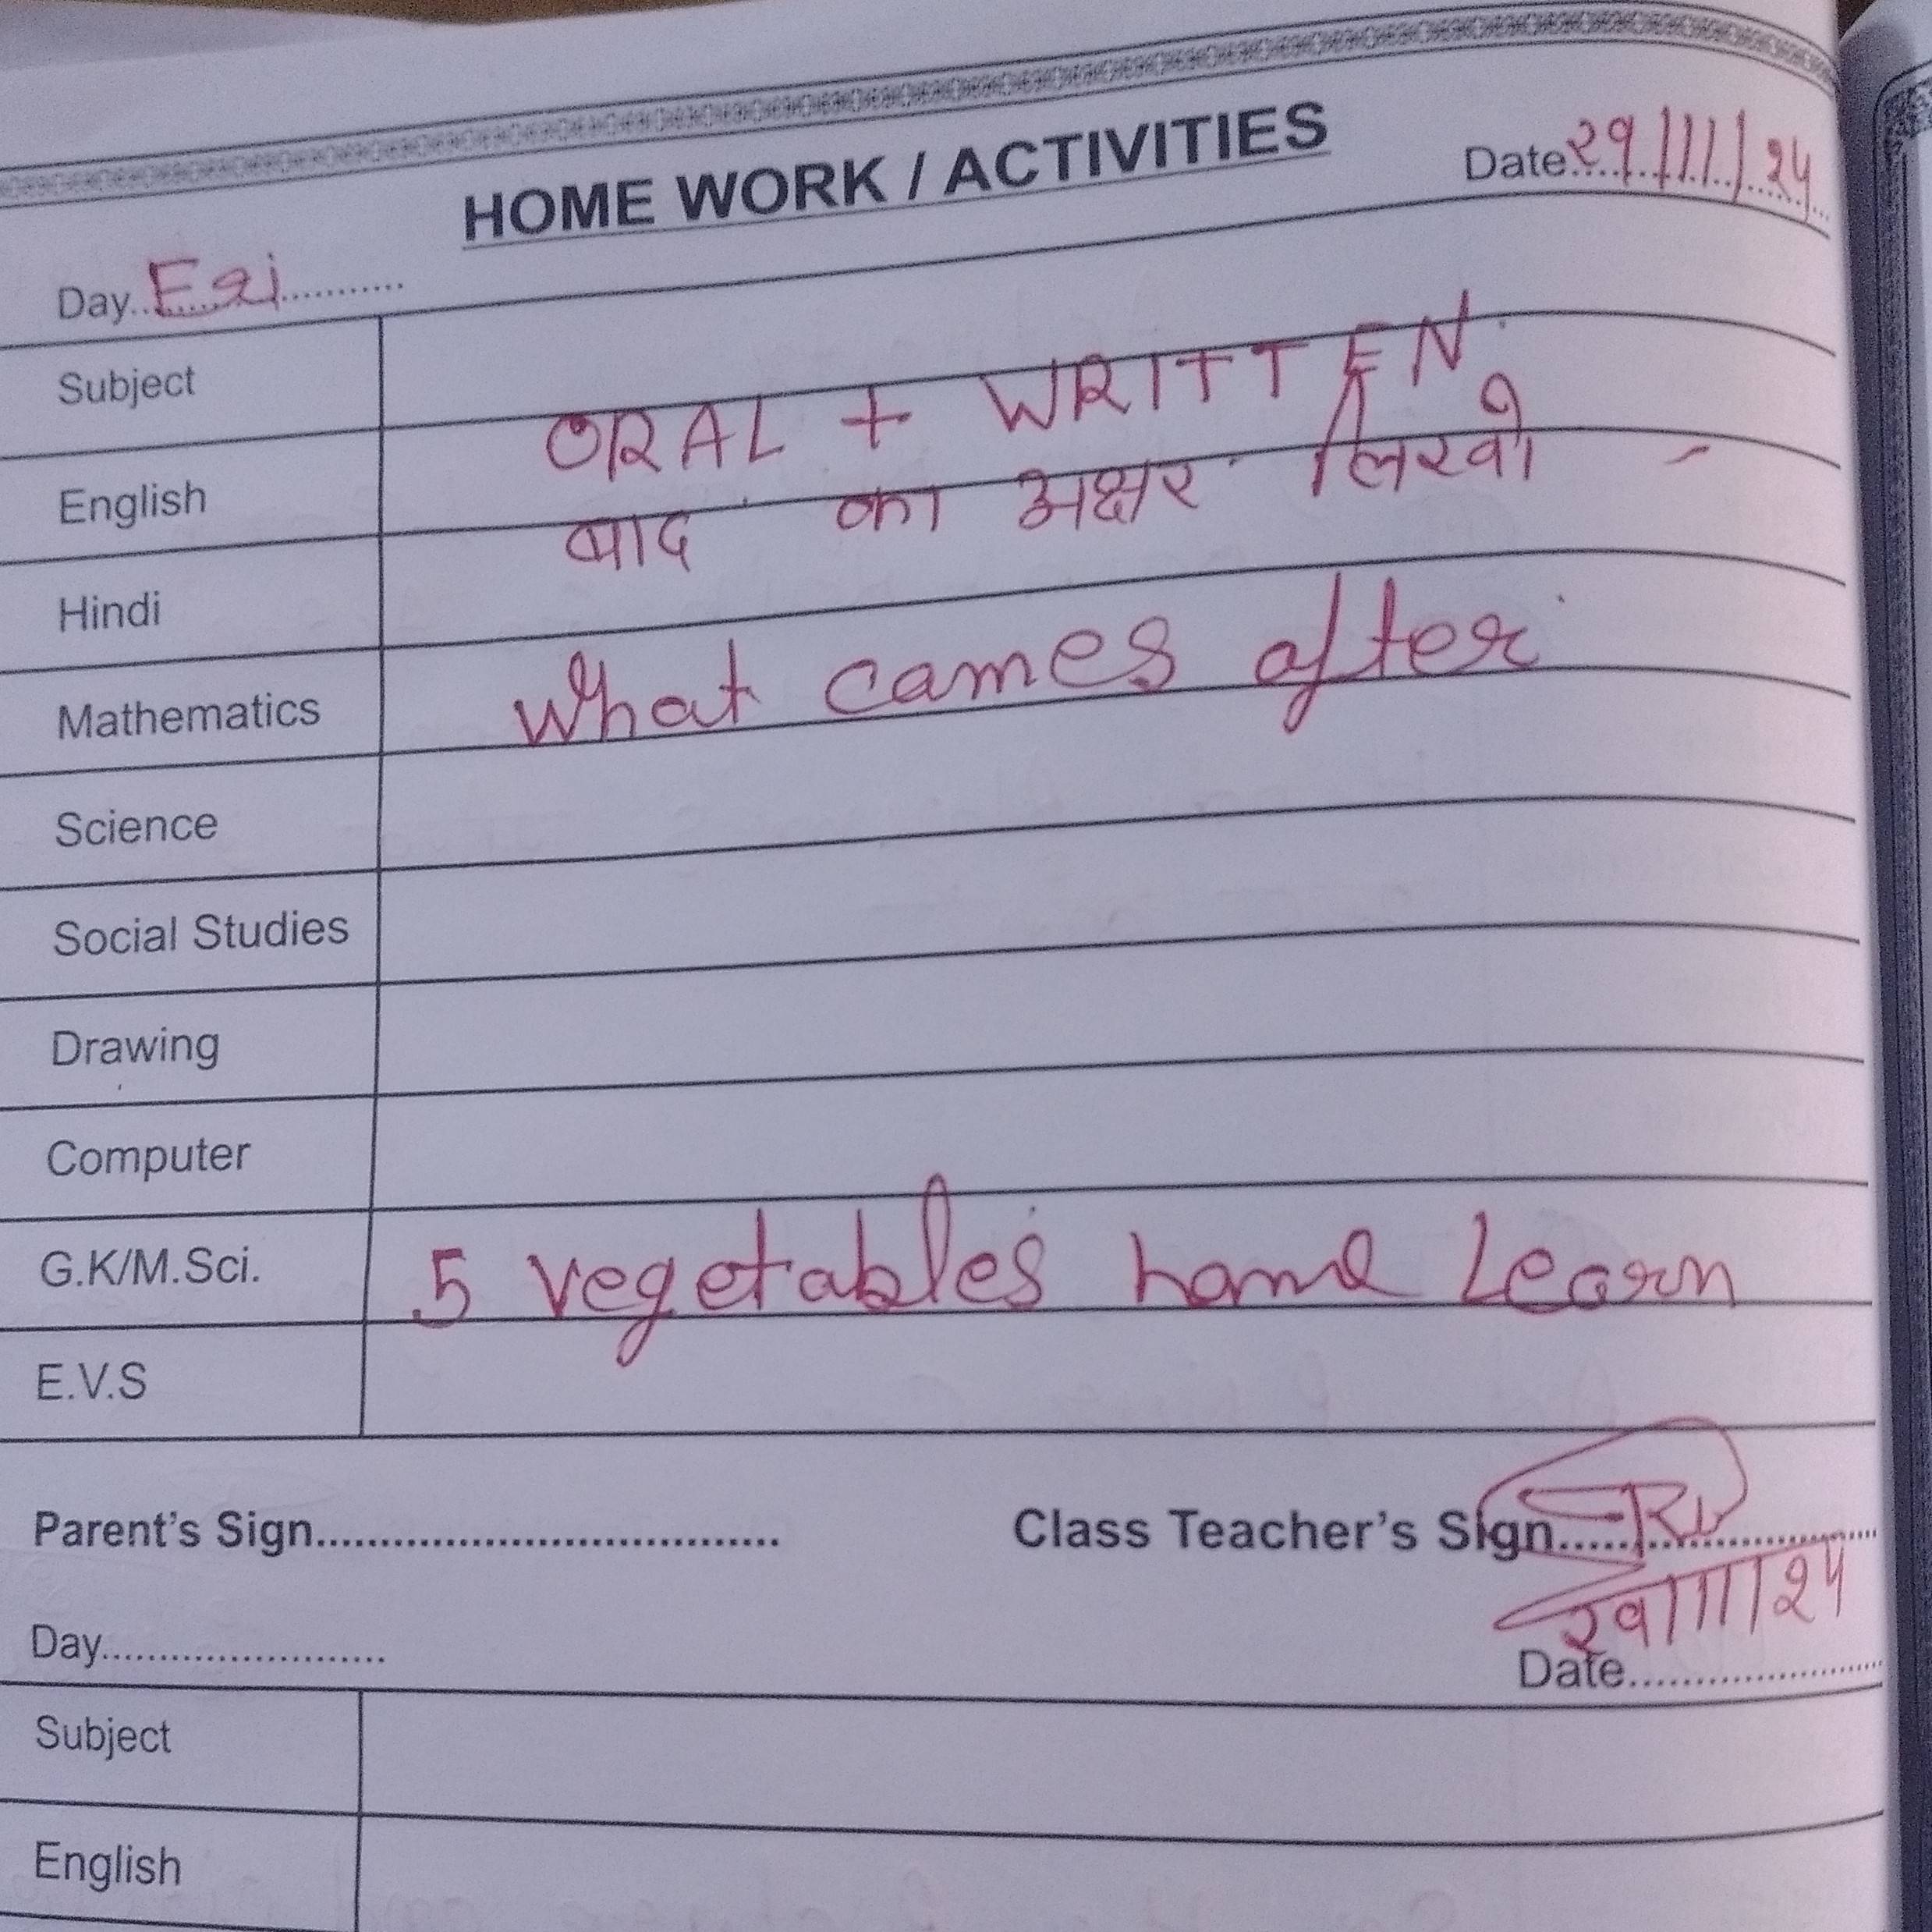 HOME WORK / ACTIVITIES
Date 29/11/24
Day Fri
Subject
ORAL + WRITTEN
English
बाद का अक्षर लिखो -
Hindi
What cames after
Mathematics
Science
Social Studies
Drawing
Computer
G.K/M.Sci.
5 vegetables name Learn
E.V.S
Parent's Sign
Class Teacher's Sign
29/11/24
Day
Date
Subject
English